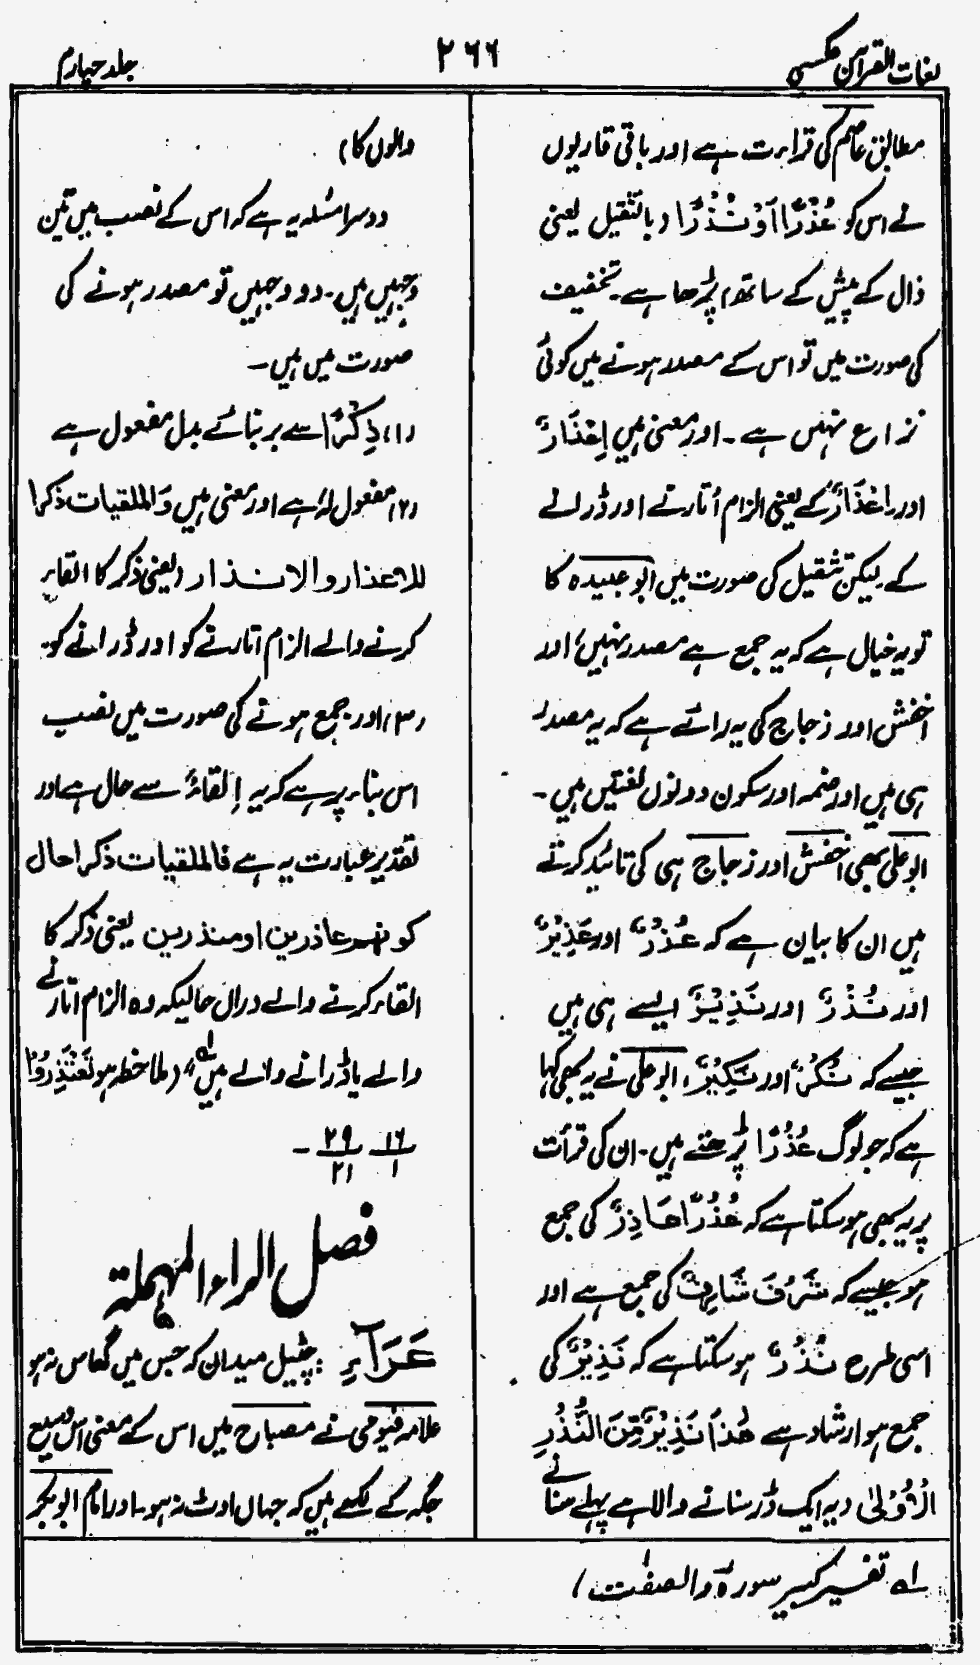 لغات القرآن عکسی
۲۶۶
جلد چہارم
مطابق عاصم کی قراءت ہے اور باقی قاریوں
نے اس کو عُذُرًا اَوْ نُذُرًا (بالثقیل یعنی
ذال کے پیش کے ساتھ) پڑھا ہے۔ تخفیف
کی صورت میں تو اس کے مصدر ہونے میں کوئی
نزاع نہیں ہے۔ اور معنی ہیں اِعْذَارٌ
اور اِنْذَارٌ کے یعنی الزام اُتارنے اور ڈرانے
کے۔ لیکن تثقیل کی صورت میں ابو عبیدہ کا
تو یہ خیال ہے کہ یہ جمع ہے مصدر نہیں، اور
اخفش اور زجاج کی یہ رائے ہے کہ یہ مصدر
ہی ہیں اور ضمہ اور سکون دونوں لغتیں ہیں۔
ابو علی بھی اخفش اور زجاج ہی کی تائید کرتے
ہیں ان کا بیان ہے کہ عُذُرٌ اور عَذِیْرٌ
اور نُذُرٌ اور نَذِیْرٌ ایسے ہی ہیں
جیسے کہ نُکُرٌ اور نَکِیْرٌ، ابو علی نے یہ بھی کہا
ہے کہ جو لوگ عُذُرًا پڑھتے ہیں۔ ان کی قرأت
پر یہ بھی ہو سکتا ہے کہ عُذُرًا عَاذِرٌ کی جمع
ہو جیسے کہ شَرُفٌ شَارِفٌ کی جمع ہے اور
اسی طرح نُذُرٌ ہو سکتا ہے کہ نَذِیْرٌ کی
جمع ہو ارشاد ہے هٰذَا نَذِیْرٌ مِّنَ النُّذُرِ
الْاُوْلٰی (یہ ایک ڈر سنانے والا ہے پہلے سنانے
والوں کا)
دوسرا مسئلہ یہ ہے کہ اس کے نصب میں تین
وجہیں ہیں۔ دو وجہیں تو مصدر ہونے کی
صورت میں ہیں۔
(۱) ذِکْرًا سے بر بنائے بدل مفعول ہے
(۲) مفعول لہٗ ہے اور معنی ہیں وَالملقیات ذکرا
للاعذار والانذار (یعنی ذکر کا القاء
کرنے والے الزام اتارنے کو اور ڈرانے کو۔
(۳) اور جمع ہونے کی صورت میں نصب
اس بناء پر ہے کہ یہ اِلقاءٌ سے حال ہے اور
تقدیر عبارت یہ ہے فالملقیات ذکرا حال
کونہم عاذرین او منذرین یعنی ذکر کا
القاء کرنے والے درآں حالیکہ وہ الزام اتارنے
والے یا ڈرانے والے ہیں لہ (ملاحظہ ہو تَعْتَذِرُوْا)
۱۶/۱ ۲۹/۲۱ -
فصل الراء المہملة
عَرَاءِ: چٹیل میدان کہ جس میں گھاس نہ ہو
علامہ فیومی نے مصباح میں اس کے معنی اس وسیع
جگہ کے لکھے ہیں کہ جہاں اوٹ نہ ہو۔ اور امام ابو بکر
لہ تفسیر کبیر سورۃ والصفّٰت)